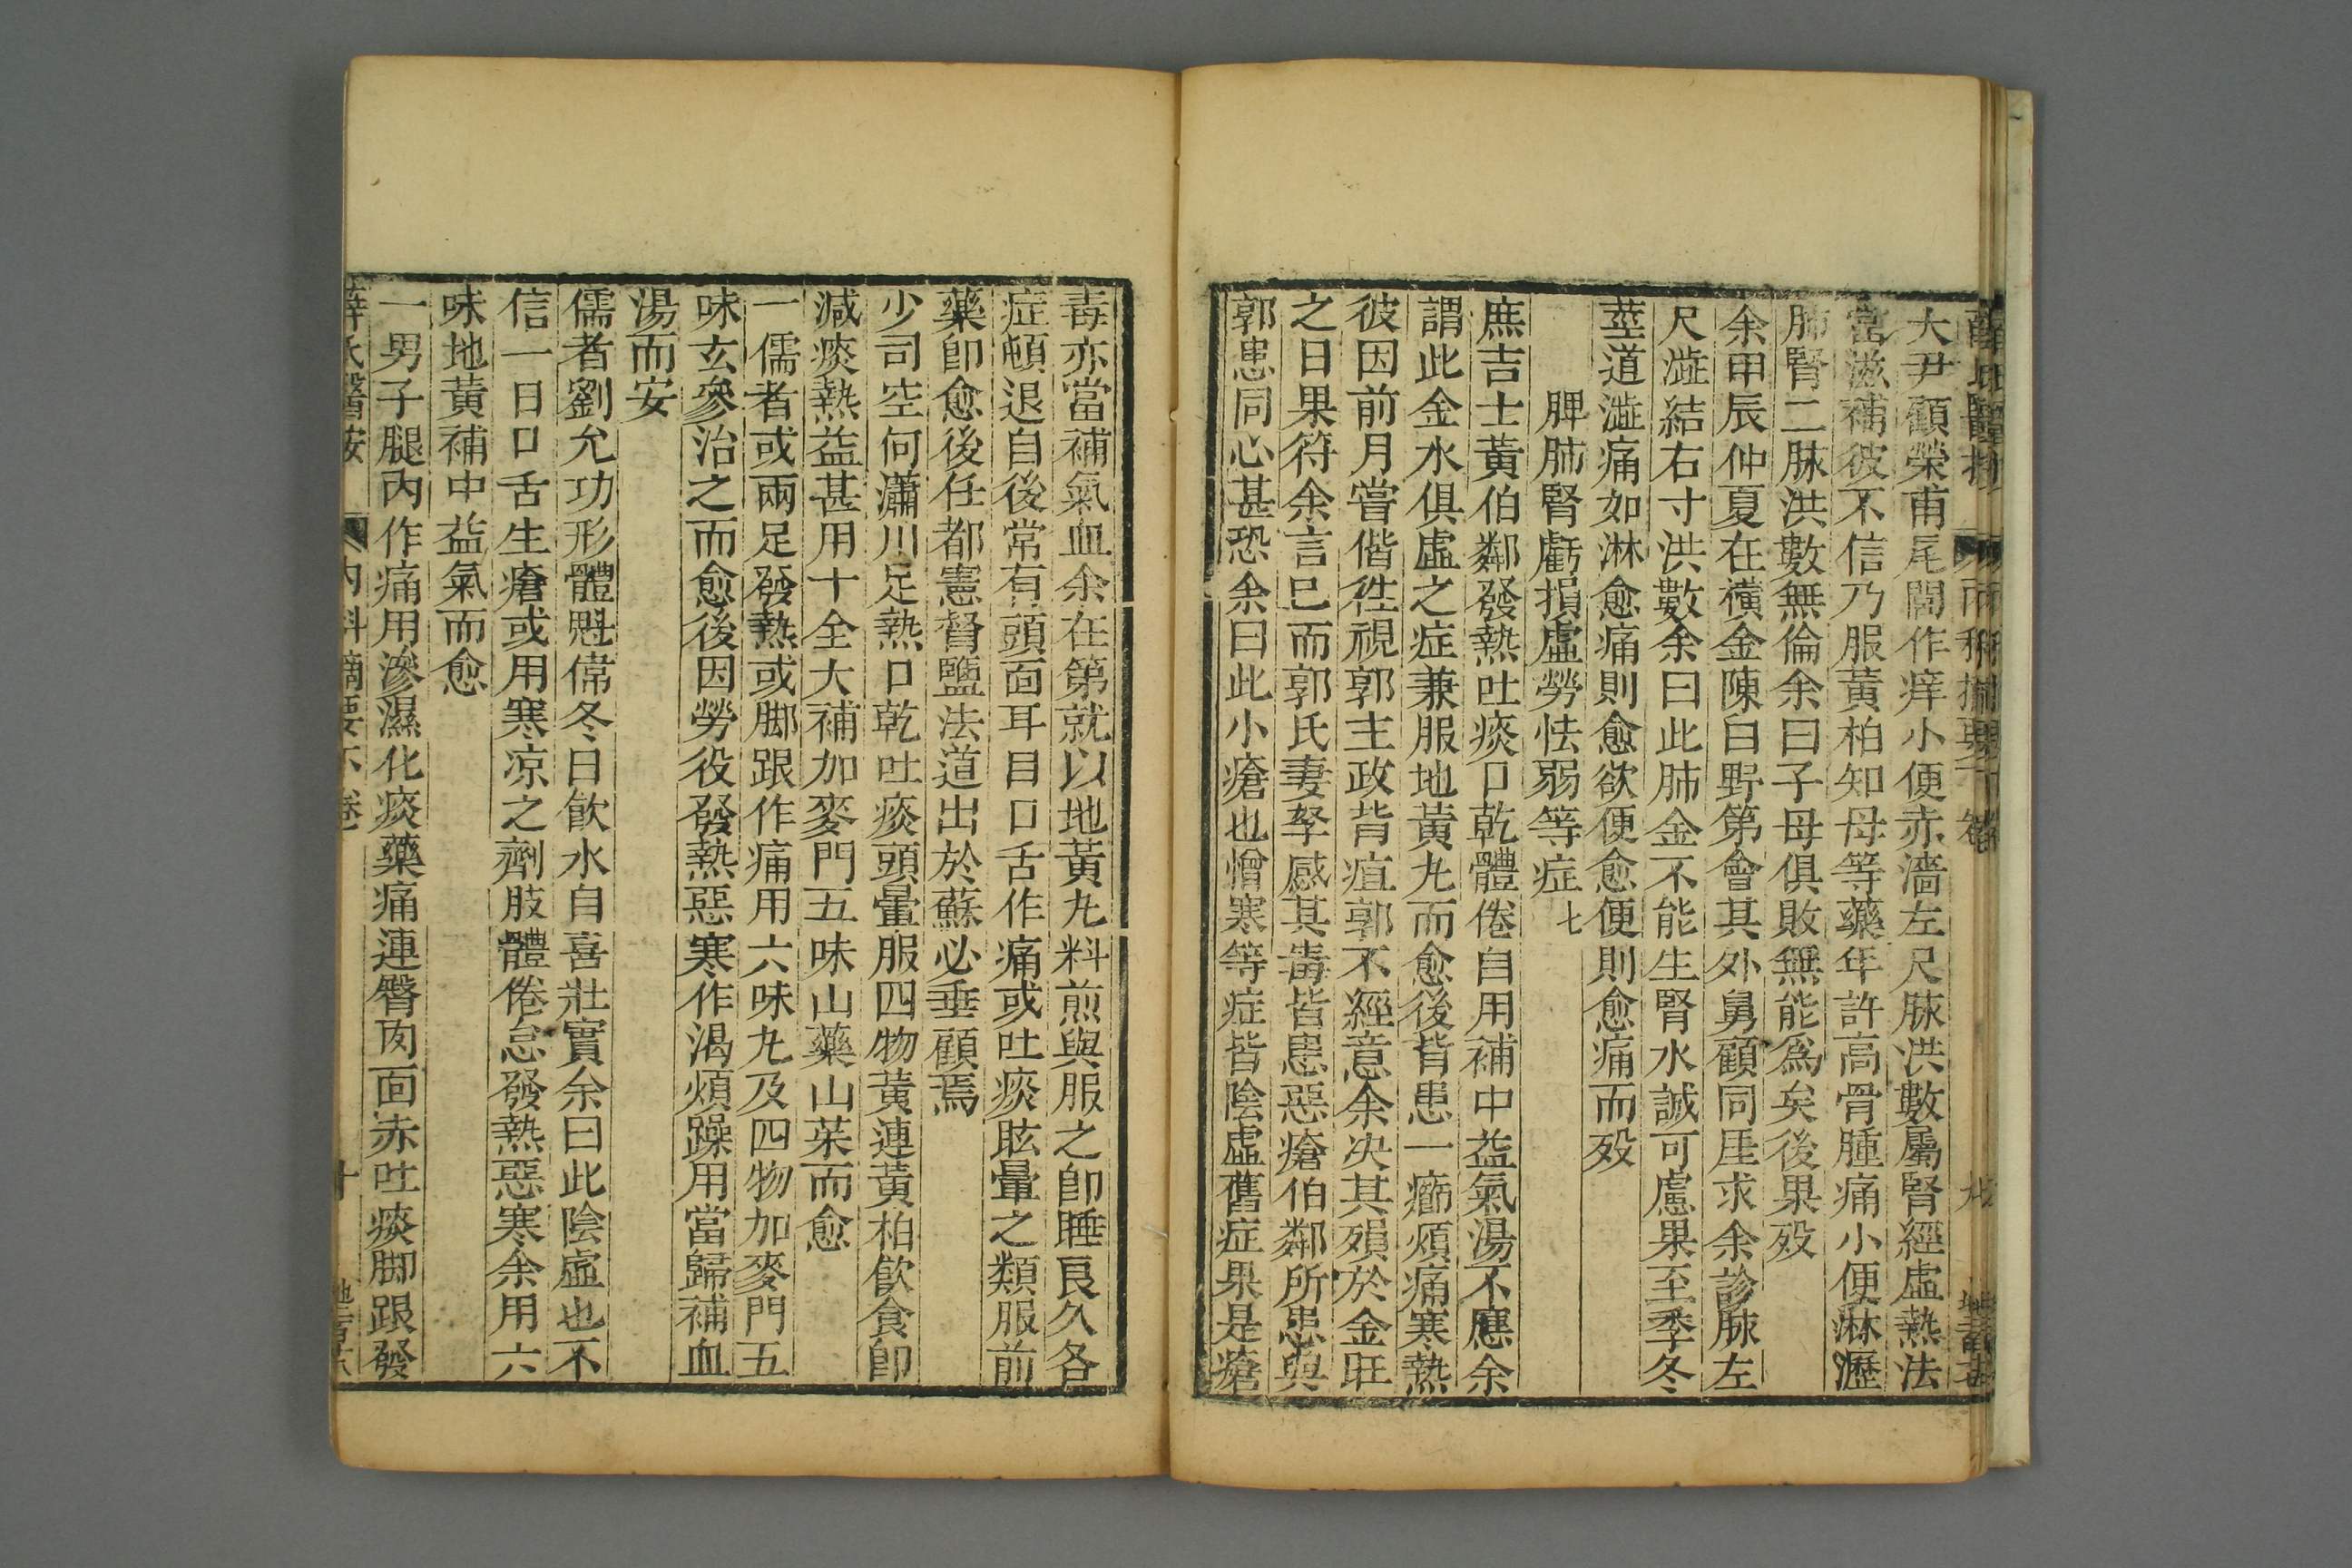 大尹顧榮甫尾閭作痒小便赤濇左尺脉洪數屬腎經虛熱法
當滋補彼不信乃服黃柏知母等藥年許高骨腫痛小便淋瀝
肺腎二脉洪數無倫余曰子母俱敗無能爲矣後果歿
余甲辰仲夏在橫金陳白野第會其外舅顧同厓求余診脉左
尺澁結右寸洪數余曰此肺金不能生腎水誠可慮果至季冬
莖道澁痛如淋愈痛則愈欲便愈便則愈痛而歿
脾肺腎虧損虛勞怯弱等症七
庶吉士黃伯鄰發熱吐痰口乾體倦自用補中益氣湯不應余
謂此金水俱虛之症兼服地黃丸而愈後背患一癤煩痛寒熱
彼因前月嘗偕徃視郭主政背疽郭不經意余决其殞於金旺
之日果符余言已而郭氏妻孥感其毒皆患惡瘡伯鄰所患與
郭患同心甚恐余曰此小瘡也憎寒等症皆陰虛舊症果是瘡
毒亦當補氣血余在第就以地黃丸料煎與服之卽睡良久各
症頓退自後常有頭面耳目口舌作痛或吐痰眩暈之類服前
藥卽愈後任都憲督鹽法道出於蘇必垂顧焉
少司空何瀟川足熱口乾吐痰頭暈服四物黃連黃柏飮食卽
減痰熱益甚用十全大補加麥門五味山藥山茱而愈
一儒者或兩足發熱或脚跟作痛用六味丸及四物加麥門五
味玄參治之而愈後因勞役發熱惡寒作渴煩躁用當歸補血
湯而安
儒者劉允功形體魁偉冬日飮水自喜壯實余曰此陰虛也不
信一日口舌生瘡或用寒凉之劑肢體倦怠發熱惡寒余用六
味地黃補中益氣而愈
一男子腿內作痛用滲濕化痰藥痛連臀肉面赤吐痰脚跟發
薛氏醫按 內科摘要下卷 十